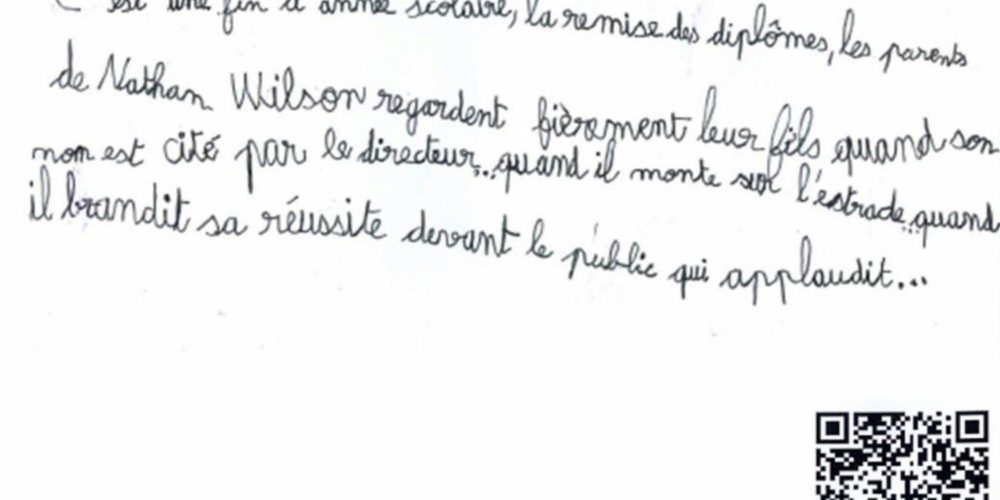 C'est une fin d'année scolaire, la remise des diplômes, les parents
de Nathan Wilson regardent fièrement leur fils quand son
nom est cité par le directeur... quand il monte sur l'estrade... quand
il brandit sa réussite devant le public qui applaudit...